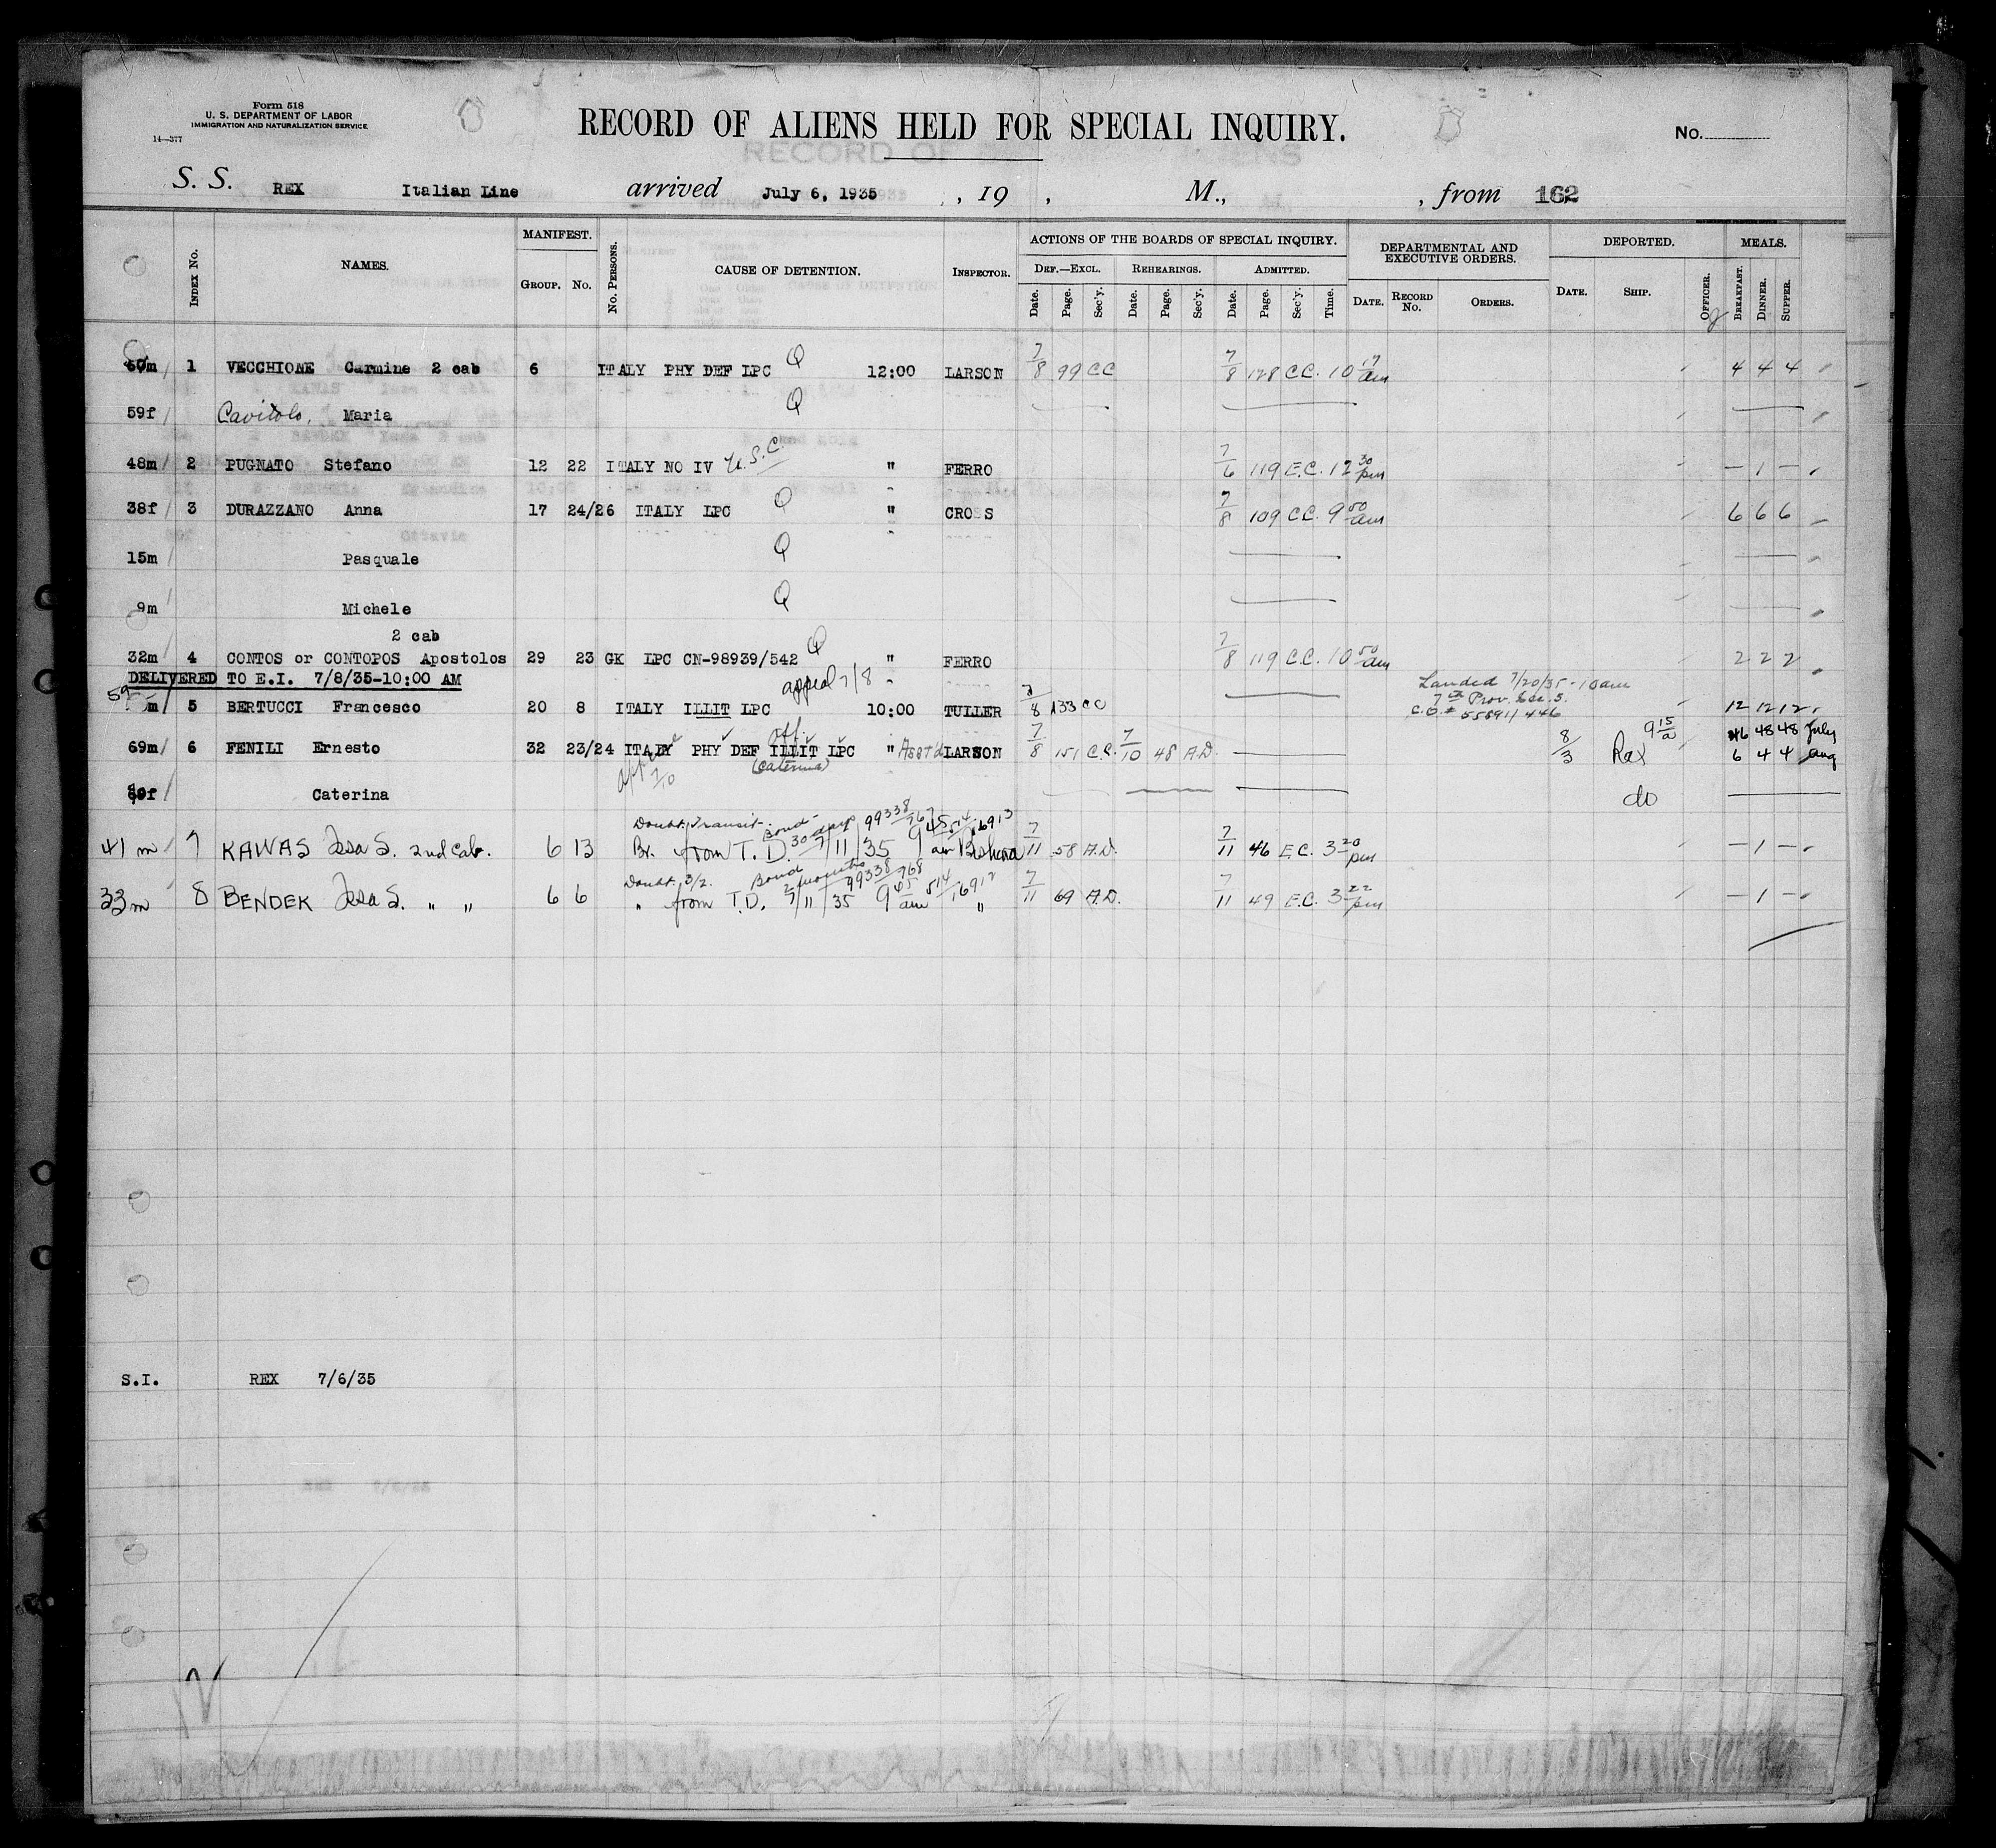 Form 518
U. S. DEPARTMENT OF LABOR
IMMIGRATION AND NATURALIZATION SERVICE
14—377
RECORD OF ALIENS HELD FOR SPECIAL INQUIRY.
No.
S. S. REX Italian Line arrived July 6, 1935 , 19 , M., , from 162
INDEX No. NAMES. MANIFEST. GROUP. No. No. PERSONS. CAUSE OF DETENTION. INSPECTOR. ACTIONS OF THE BOARDS OF SPECIAL INQUIRY. DEPARTMENTAL AND EXECUTIVE ORDERS. DEPORTED. MEALS.
DEF.—EXCL. REHEARINGS. ADMITTED.
Date. Page. Sec'y. Date. Page. Sec'y. Date. Page. Sec'y. Time. DATE. RECORD No. ORDERS. DATE. SHIP. OFFICER. BREAKFAST. DINNER. SUPPER.
60m 1 VECCHIONE Carmine 2 cab 6 ITALY PHY DEF LPC Q 12:00 LARSON 7/8 99 CC 7/8 128 C.C. 10 17 am 4 4 4
59f Cavitolo, Maria Q
48m 2 PUGNATO Stefano 12 22 ITALY NO IV U.S.C. " FERRO 7/6 119 E.C. 12 30 pm — 1 —
38f 3 DURAZZANO Anna 17 24/26 ITALY LPC Q " CROSS 7/8 109 C.C. 9 50 am 6 6 6
15m Pasquale Q
9m Michele Q
2 cab
32m 4 CONTOS or CONTOPOS Apostolos 29 23 GK LPC CN-98939/542 Q " FERRO 7/8 119 C.C. 10 50 am 2 2 2
DELIVERED TO E.I. 7/8/35-10:00 AM appeal 7/8 Landed 7/20/35-10am
59m 5 BERTUCCI Francesco 20 8 ITALY ILLIT LPC 10:00 TULLER 7/8 133 CC 7th Prov. Sec. 3. C.O.# 55891/446 12 12 12
69m 6 FENILI Ernesto 32 23/24 ITALY PHY DEF ILLIT LPC " LARSON 7/8 151 C.C. 7/10 48 A.D. 8/3 Rex 9 15 a 46 48 48 July
(Caterina) 6 4 4 Aug
Caterina do
Doubt. Transit. Bond 30 days 99338/767
41 m 7 KAWAS Issa S. 2nd Cab. 6 13 Br. from T. D. 7/11/35 9 45 am 7/11 58 A.D. 7/11 46 E.C. 3 20 pm — 1 —
Doubt. 3/2. Bond 2 months 99338/768
33m 8 BENDEK Issa S. " " 6 6 " from T.D. 7/11/35 9 45 am " 7/11 69 A.D. 7/11 49 E.C. 3 22 pm — 1 —
S.I. REX 7/6/35